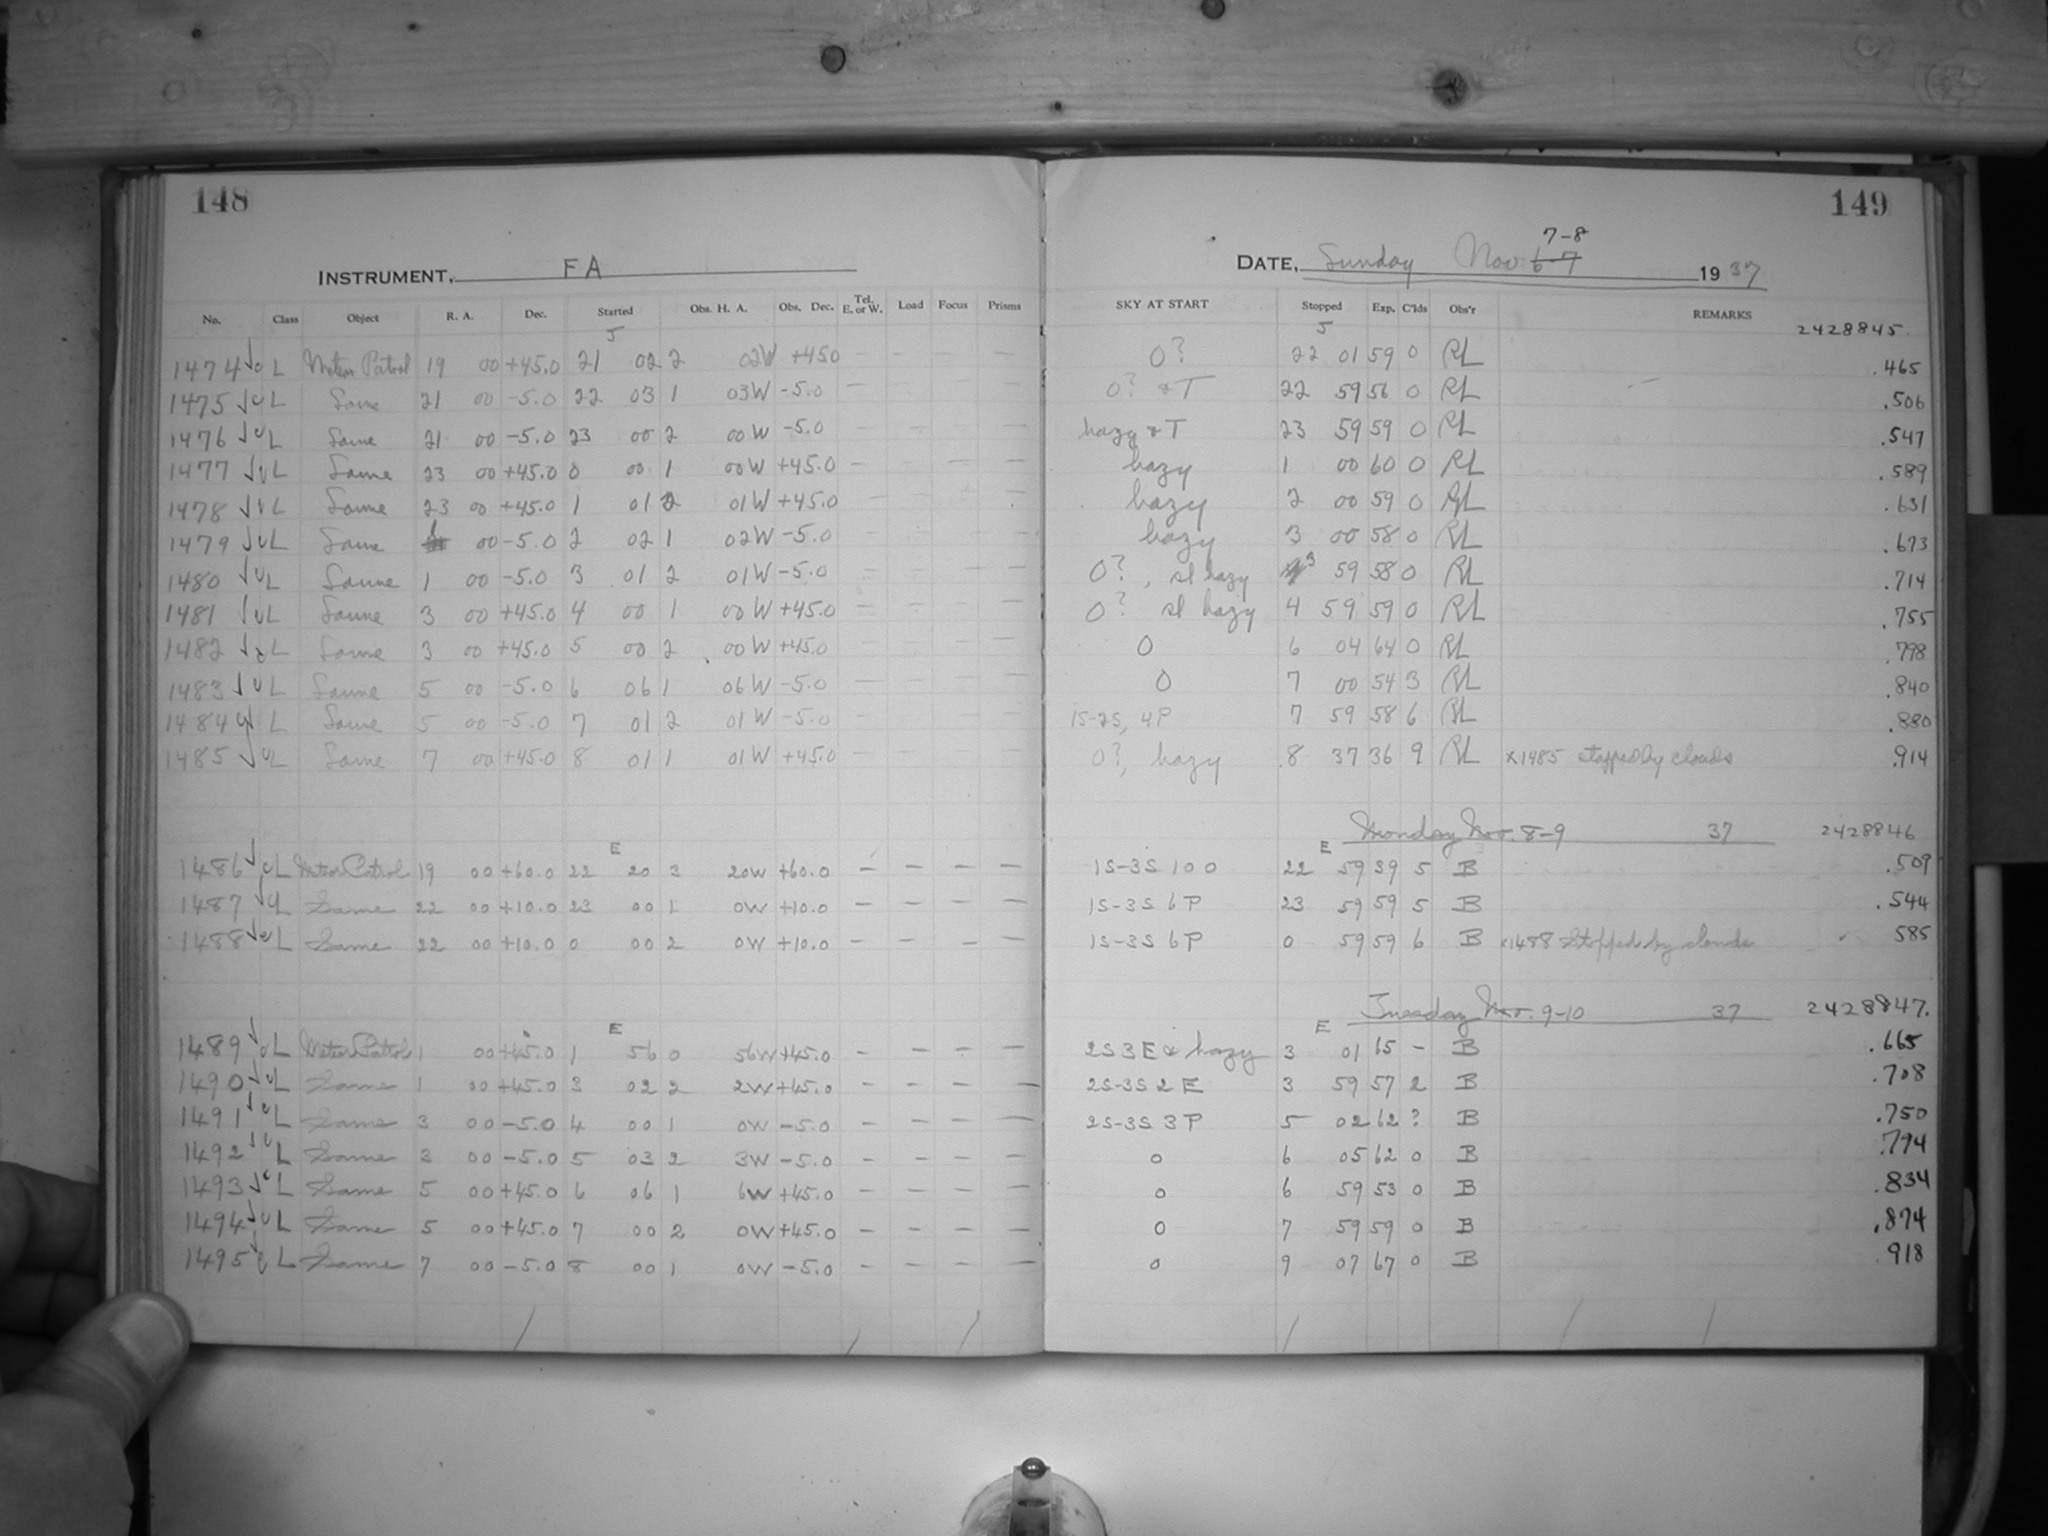 148
149
INSTRUMENT, FA
7-8
DATE, Sunday Nov. 6-7 1937
No. Class Object R. A. Dec. Started Obs. H. A. Obs. Dec. Tel. E. or W. Load Focus Prisms SKY AT START Stopped Exp. C'lds Obs'r REMARKS 2428845.
1474 L Meteor Patrol 19 00 +45.0 21 02 2 02W +45.0 — — — 0? 22 01 59 0 RL .465
1475 L Same 21 00 -5.0 22 03 1 03W -5.0 — — — — 0? & T 22 59 56 0 RL .506
1476 L Same 21 00 -5.0 23 00 2 00W -5.0 — — — — hazy & T 23 59 59 0 RL .547
1477 L Same 23 00 +45.0 0 00 1 00W +45.0 — — — — hazy 1 00 60 0 RL .589
1478 L Same 23 00 +45.0 1 01 2 01W +45.0 — — — — hazy 2 00 59 0 RL .631
1479 L Same 1 00 -5.0 2 02 1 02W -5.0 — — — — hazy 3 00 58 0 RL .673
1480 L Same 1 00 -5.0 3 01 2 01W -5.0 — — — — 0?, sl hazy 3 59 58 0 RL .714
1481 L Same 3 00 +45.0 4 00 1 00W +45.0 — — — — 0? sl hazy 4 59 59 0 RL .755
1482 L Same 3 00 +45.0 5 00 2 00W +45.0 — — — — 0 6 04 64 0 RL .798
1483 L Same 5 00 -5.0 6 06 1 06W -5.0 — — — — 0 7 00 54 3 RL .840
1484 L Same 5 00 -5.0 7 01 2 01W -5.0 — — — — 1S-2S, 4P 7 59 58 6 RL .880
1485 L Same 7 00 +45.0 8 01 1 01W +45.0 — — — — 0?, hazy 8 37 36 9 RL x1485 stopped by clouds .914
Monday Nov. 8-9 37 2428846
E E
1486 L Meteor Patrol 19 00 +60.0 22 20 3 20W +60.0 — — — — 1S-3S 10 0 22 59 39 5 B .509
1487 L Same 22 00 +10.0 23 00 1 0W +10.0 — — — — 1S-3S 6P 23 59 59 5 B .544
1488 L Same 22 00 +10.0 0 00 2 0W +10.0 — — — — 1S-3S 6P 0 59 59 6 B x1488 Stopped by clouds 585
Tuesday Nov. 9-10 37 2428847.
E E
1489 L Meteor Patrol 1 00 +45.0 1 56 0 56W +45.0 — — — — 2S 3E & hazy 3 01 65 — B .665
1490 L Same 1 00 +45.0 3 02 2 2W +45.0 — — — — 2S-3S 2E 3 59 57 2 B .708
1491 L Same 3 00 -5.0 4 00 1 0W -5.0 — — — — 2S-3S 3P 5 02 62 ? B .750
1492 L Same 3 00 -5.0 5 03 2 3W -5.0 — — — — 0 6 05 62 0 B .794
1493 L Same 5 00 +45.0 6 06 1 6W +45.0 — — — — 0 6 59 53 0 B .834
1494 L Same 5 00 +45.0 7 00 2 0W +45.0 — — — — 0 7 59 59 0 B .874
1495 L Same 7 00 -5.0 8 00 1 0W -5.0 — — — — 0 9 07 67 0 B .918